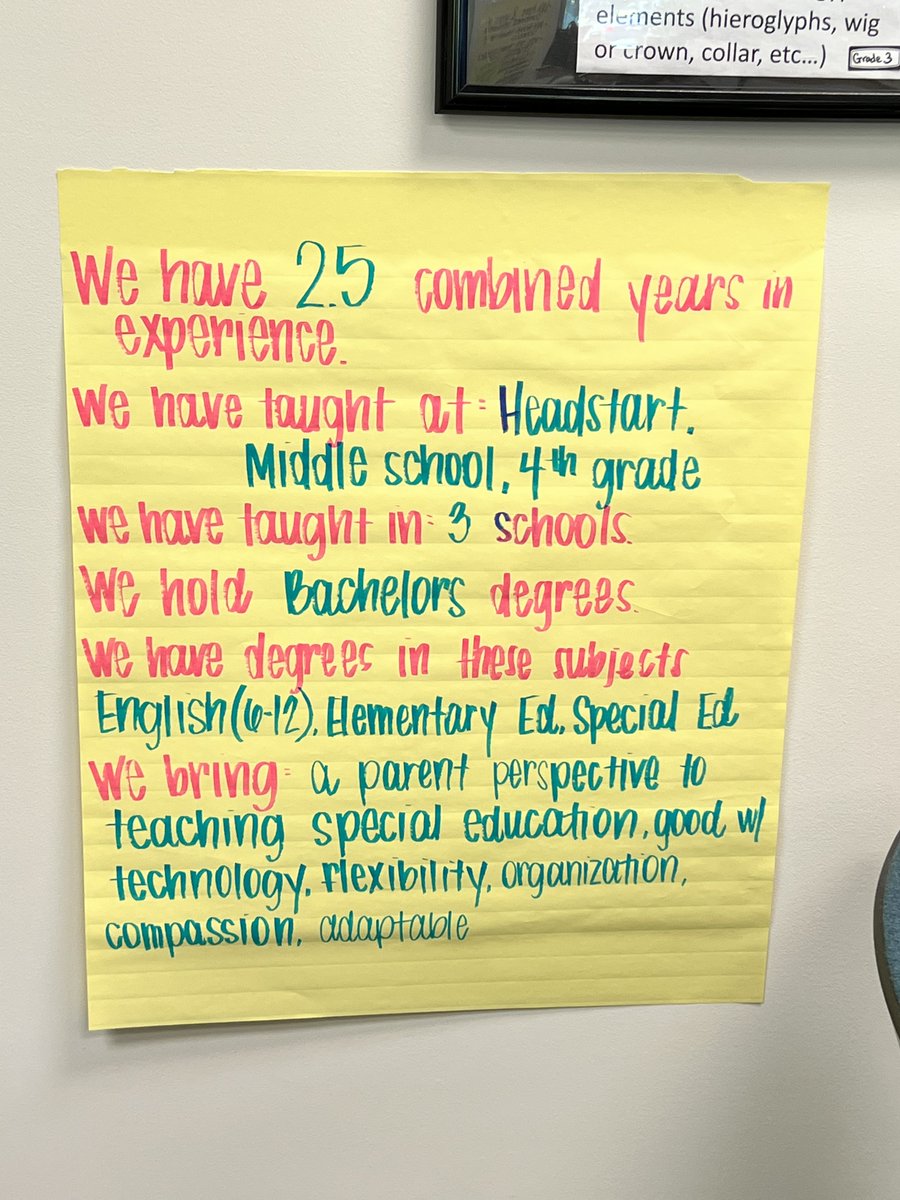 elements (hieroglyphs, wig
or crown, collar, etc...) Grade 3
We have 2.5 combined years in
experience.
We have taught at: Headstart,
Middle school, 4th grade
We have taught in: 3 schools.
We hold Bachelors degrees.
We have degrees in these subjects
English (6-12), Elementary Ed, Special Ed
We bring: a parent perspective to
teaching special education, good w/
technology, flexibility, organization,
compassion, adaptable